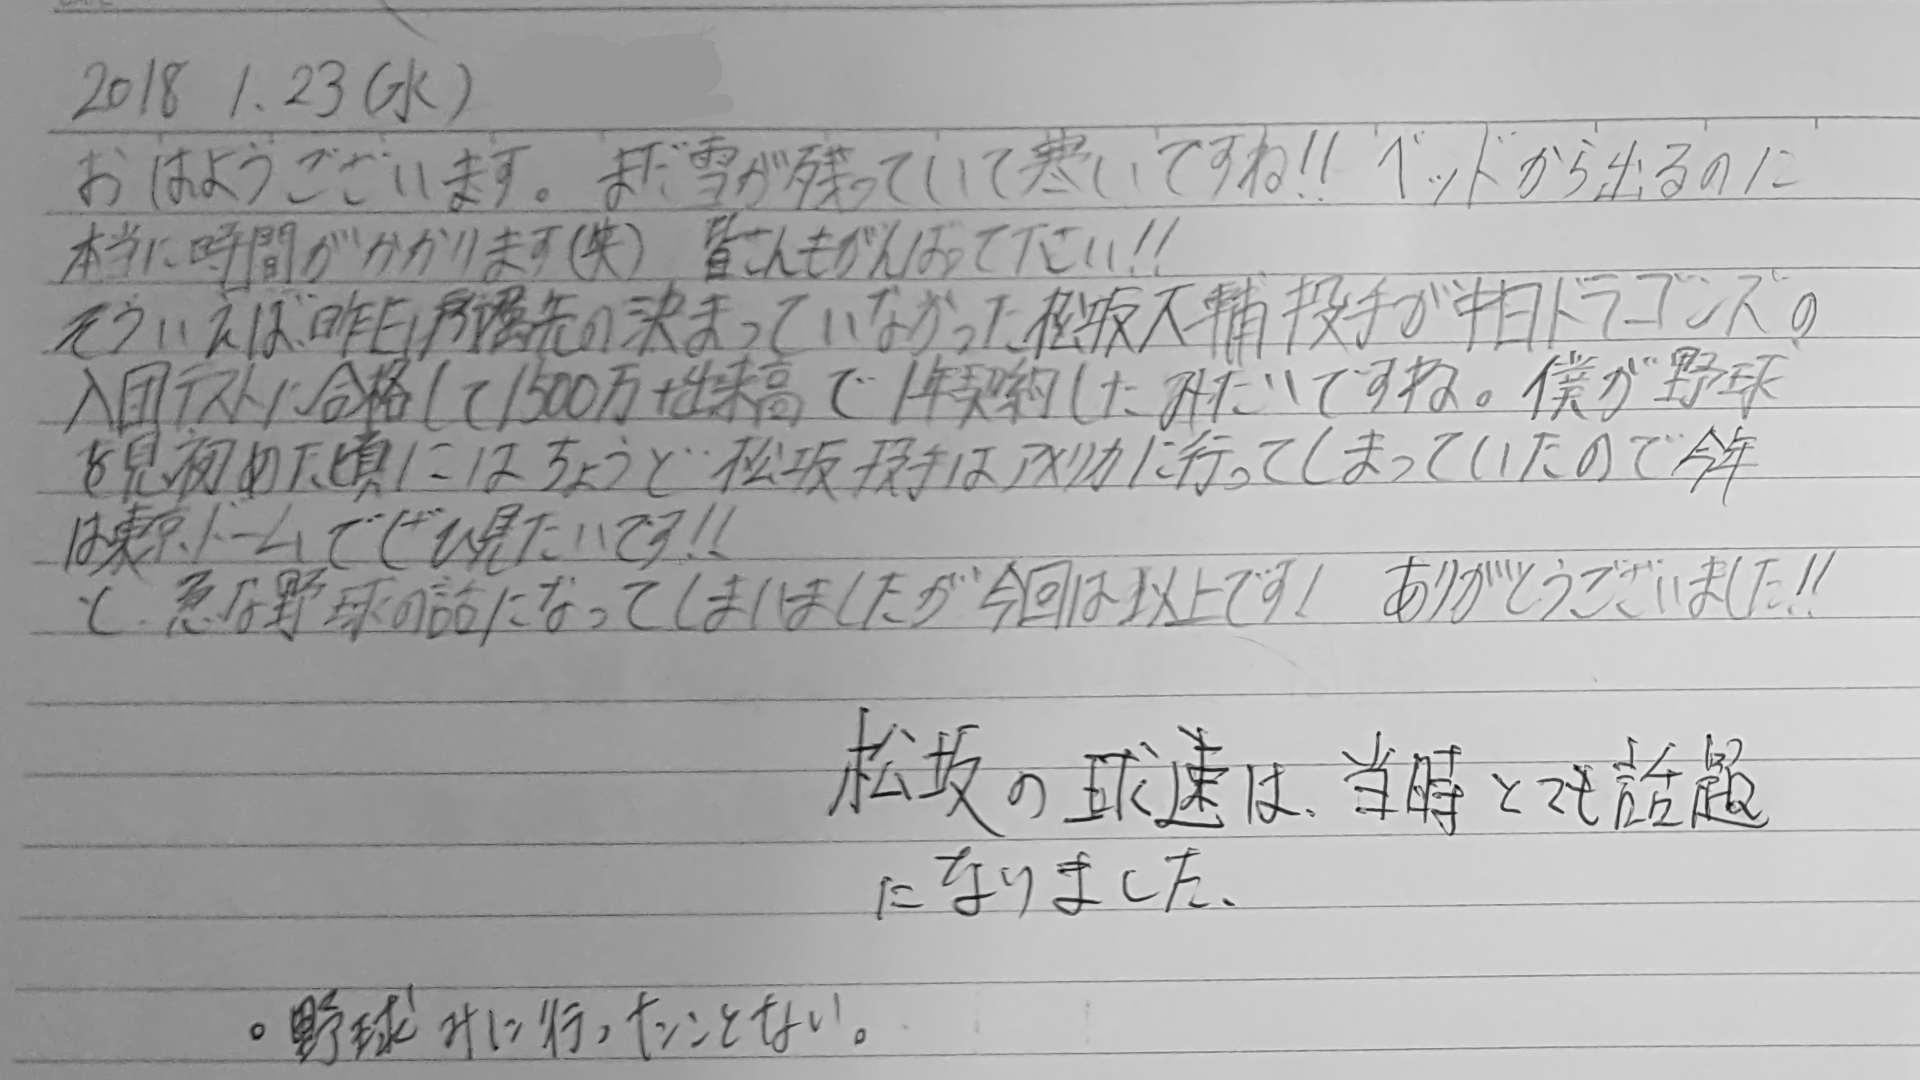 2018 1.23(水)
おはようございます。まだ雪が残っていて寒いですね!! ベッドから出るのに
本当に時間がかかります(笑) 皆さんもがんばって下さい!!
そういえば、昨日所属先の決まっていなかった松坂大輔投手が中日ドラゴンズの
入団テストに合格して1500万+出来高で1年契約したみたいですね。僕が野球
を見初めた頃にはちょうど松坂投手はアメリカに行ってしまっていたので今年
は東京ドームでぜひ見たいです!!
と、急な野球の話になってしまいましたが今回は以上です! ありがとうございました!!
松坂の球速は、当時とても話題
になりました、
。野球みに行ったことない。